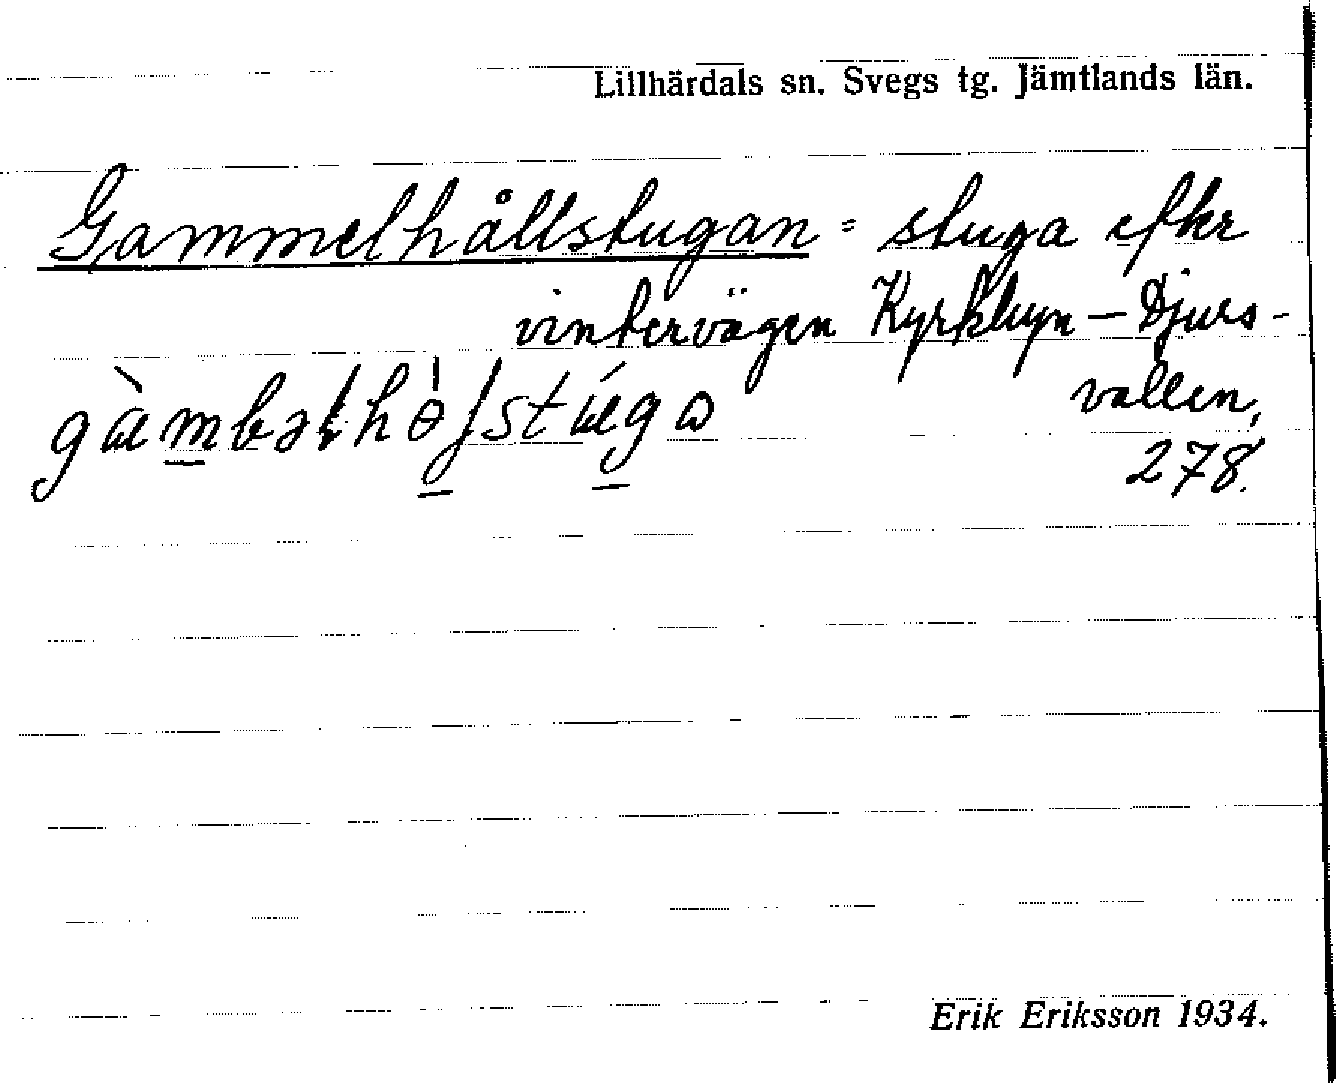 Lillhärdals sn. Svegs tg. Jämtlands län.
Gammelhållstugan = stuga efter
vintervägen Kyrkbyn – Djurs-
vallen,
278.
Erik Eriksson 1934.